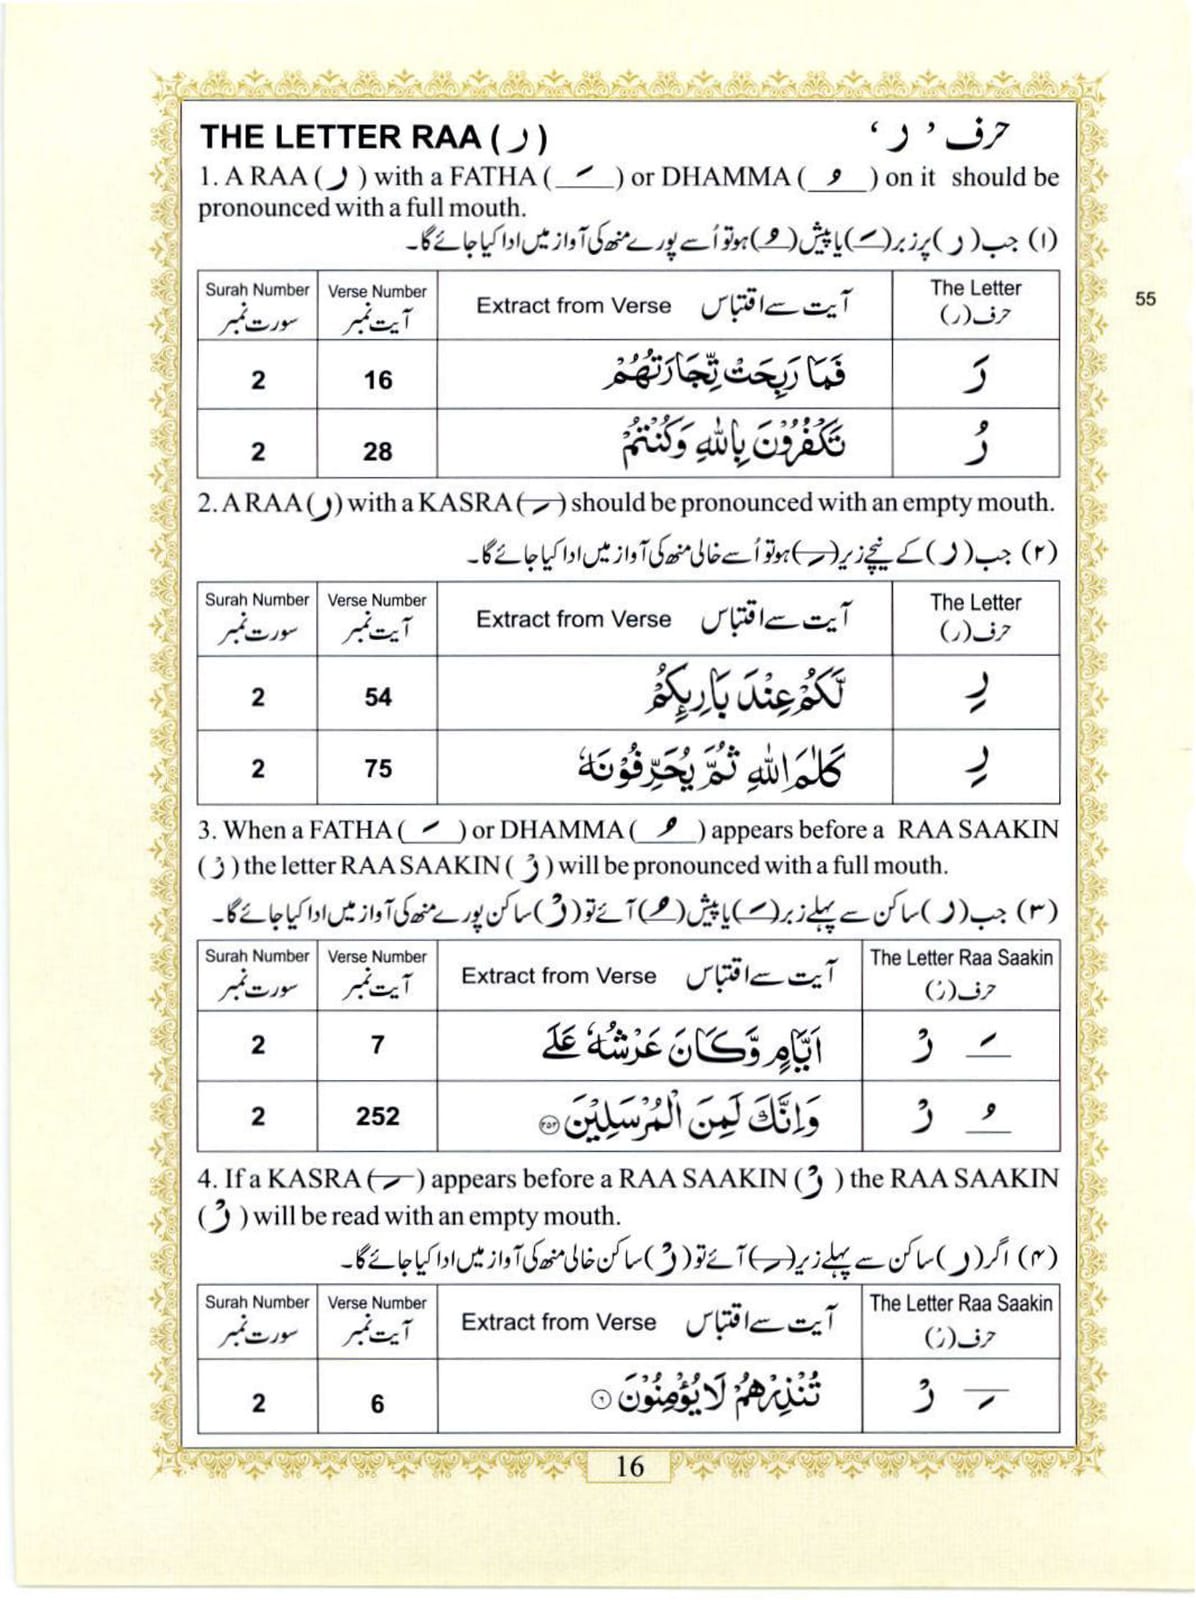 THE LETTER RAA ( ر ) حرف ’ ر ‘
1. A RAA ( ر ) with a FATHA ( َ ) or DHAMMA ( ُ ) on it should be
pronounced with a full mouth.
(۱) جب ( ر ) پر زبر ( َ ) یا پیش ( ُ ) ہو تو اُسے پورے منھ کی آواز میں ادا کیا جائے گا۔
55
Surah Number Verse Number Extract from Verse آیت سے اقتباس The Letter
سورت نمبر آیت نمبر حرف (ر)
2 16 فَمَا رَبِحَتْ تِّجَارَتُهُمْ رَ
2 28 تَكْفُرُوْنَ بِاللّٰهِ وَكُنْتُمْ رُ
2. A RAA ( ر ) with a KASRA ( ِ ) should be pronounced with an empty mouth.
(۲) جب ( ر ) کے نیچے زیر ( ِ ) ہو تو اُسے خالی منھ کی آواز میں ادا کیا جائے گا۔
Surah Number Verse Number Extract from Verse آیت سے اقتباس The Letter
سورت نمبر آیت نمبر حرف (ر)
2 54 لَّكُمْ عِنْدَ بَارِىِٕكُمْ رِ
2 75 كَلٰمَ اللّٰهِ ثُمَّ يُحَرِّفُوْنَهٗ رِ
3. When a FATHA ( َ ) or DHAMMA ( ُ ) appears before a RAA SAAKIN
( رْ ) the letter RAA SAAKIN ( رْ ) will be pronounced with a full mouth.
(۳) جب ( ر ) ساکن سے پہلے زبر ( َ ) یا پیش ( ُ ) آئے تو ( رْ ) ساکن پورے منھ کی آواز میں ادا کیا جائے گا۔
Surah Number Verse Number Extract from Verse آیت سے اقتباس The Letter Raa Saakin
سورت نمبر آیت نمبر حرف (رْ)
2 7 اَيَّامٍ وَّكَانَ عَرْشُهٗ عَلَى َ رْ
2 252 وَاِنَّكَ لَمِنَ الْمُرْسَلِيْنَ ۲۵۲ ُ رْ
4. If a KASRA ( ِ ) appears before a RAA SAAKIN ( رْ ) the RAA SAAKIN
( رْ ) will be read with an empty mouth.
(۴) اگر ( ر ) ساکن سے پہلے زیر ( ِ ) آئے تو ( رْ ) ساکن خالی منھ کی آواز میں ادا کیا جائے گا۔
Surah Number Verse Number Extract from Verse آیت سے اقتباس The Letter Raa Saakin
سورت نمبر آیت نمبر حرف (رْ)
2 6 تُنْذِرْهُمْ لَا يُؤْمِنُوْنَ ۶ ِ رْ
16